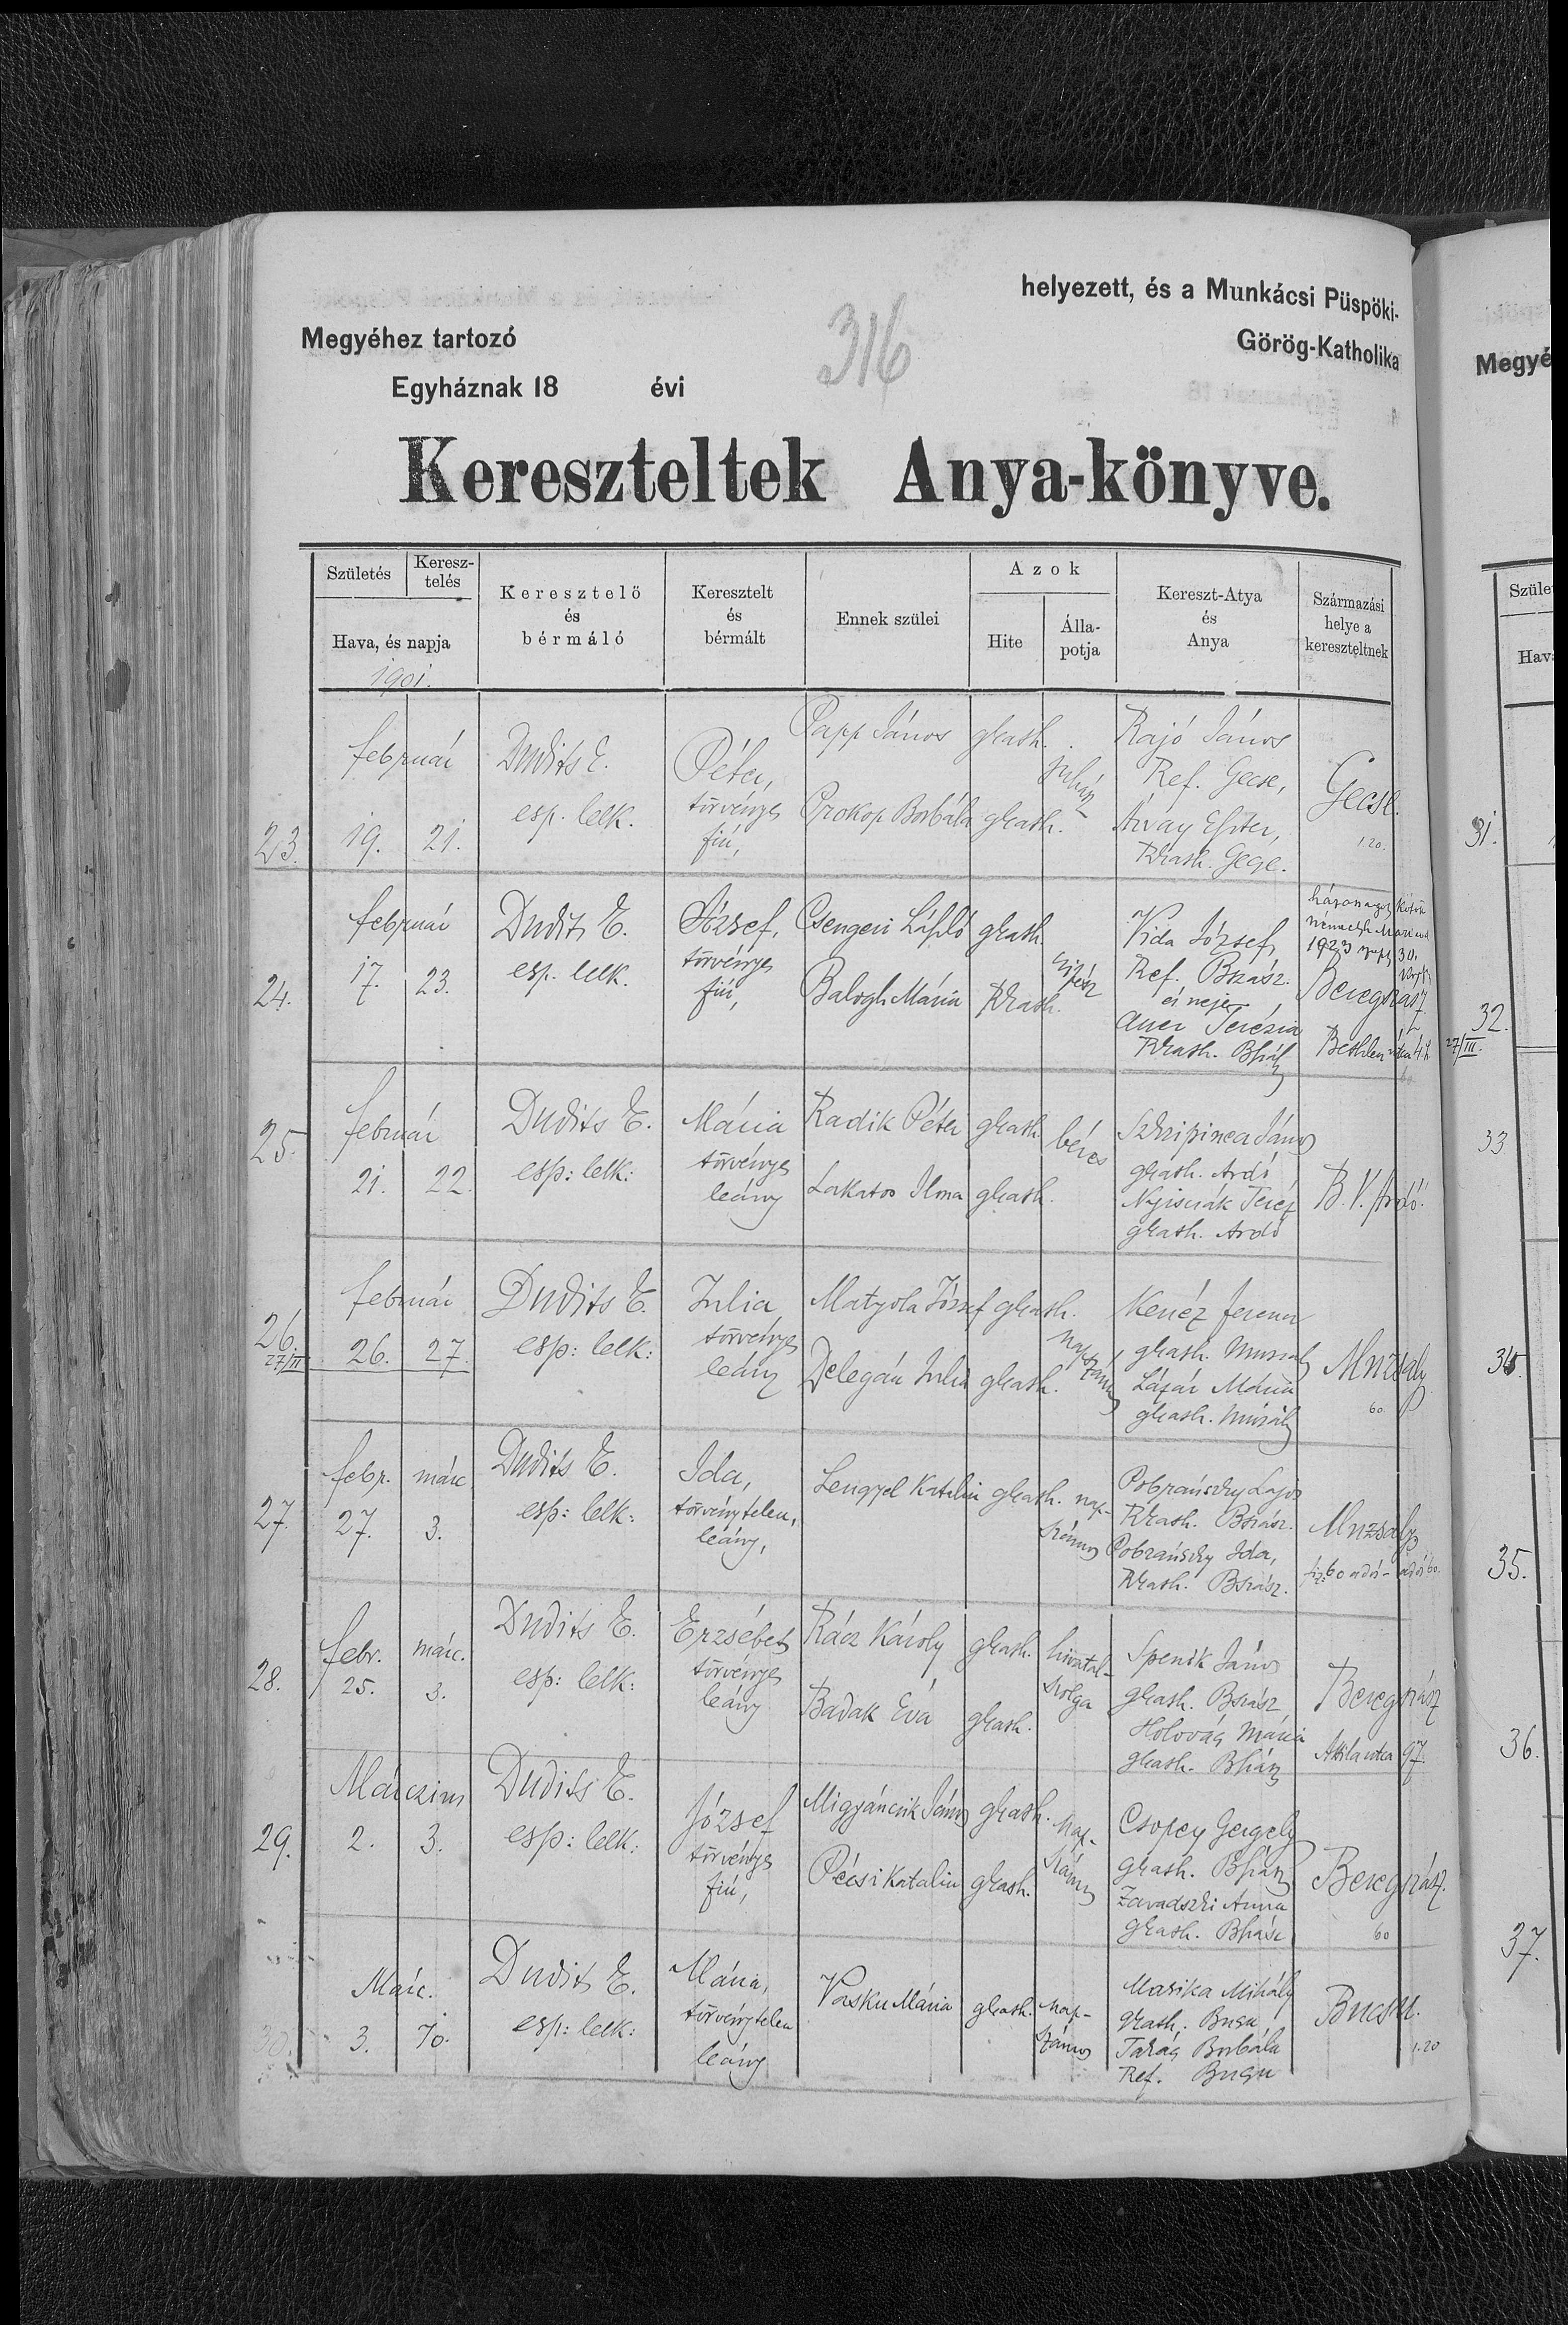 helyezett, és a Munkácsi Püspöki-
Megyéhez tartozó
316
Görög-Katholika
Egyháznak 18 évi
Kereszteltek Anya-könyve.
Születés
Keresz-
telés
Hava, és napja
1901.
Keresztelő
és
bérmáló
Keresztelt
és
bérmált
Ennek szülei
Azok
Hite
Álla-
potja
Kereszt-Atya
és
Anya
Származási
helye a
kereszteltnek
23.
február
19. 21.
Dudits E.
esp. lelk.
Péter,
törvényes
fiú,
Papp János gkath.
Prokop Borbála gkath.
juhász
Rajó János
Ref. Gecse,
Árvay Eszter,
Rkath. Gecse.
Gecse.
1.20.
24.
február
17. 23.
Dudits E.
esp. lelk.
József,
törvényes
fiú,
Csengeri László gkath.
Balogh Mária Rkath.
Vida József,
Ref. Bszász.
és neje
Auer Terézia
Rkath. Bszász
1923
30.
Beregszász
Bethlen utca
60
25.
február
21. 22.
Dudits E.
esp: lelk:
Mária
törvényes
leány
Radik Péter gkath.
Lakatos Ilona gkath.
béres
Szkripinca János
gkath. Ardó
Nyiscsák Teréz
gkath. Ardó
B.V. Ardó.
26.
27/III
február
26. 27.
Dudits E.
esp: lelk:
Julia
törvényes
leány
Matyola József gkath.
Delegán Julia gkath.
napszámos
Kenéz Ferencz
gkath. Muzsaly
Lázár Mária
gkath. Muzsaly
Muzsaly
60.
27.
febr. márc
27. 3.
Dudits E.
esp: lelk:
Ida,
törvénytelen,
leány,
Lengyel Katalin gkath.
nap-
számos
Pobránszky Lajos
Rkath. Bszász.
Pobránszky Ida,
Rkath. Bszász.
Muzsaly
28.
febr. márc.
25. 3.
Dudits E.
esp: lelk:
Erzsébet
törvényes
leány
Rácz Károly gkath.
Badak Éva gkath.
hivatal-
szolga
Spenik János
gkath. Bszász
Holovács Mária
gkath. Bszász
Beregszász
Attila utca 97.
29.
Márczius
2. 3.
Dudits E.
esp: lelk:
József
törvényes
fiú,
Migyáncsik János gkath.
Pécsi Katalin gkath.
nap-
számos
Csopey Gergely
gkath. Bszász
Zavadszki Anna
gkath. Bszász
Beregszász.
60
30.
Márc.
3. 10.
Dudits E.
esp: lelk:
Mária,
törvénytelen
leány
Vasku Mária gkath.
nap-
számos
Masika Mihály
gkath. Bucsu
Takács Borbála
Ref. Bucsu
Bucsu.
1.20
Megyé
Szüle
Hav
31.
32.
27/III.
33.
34.
35.
36.
37.